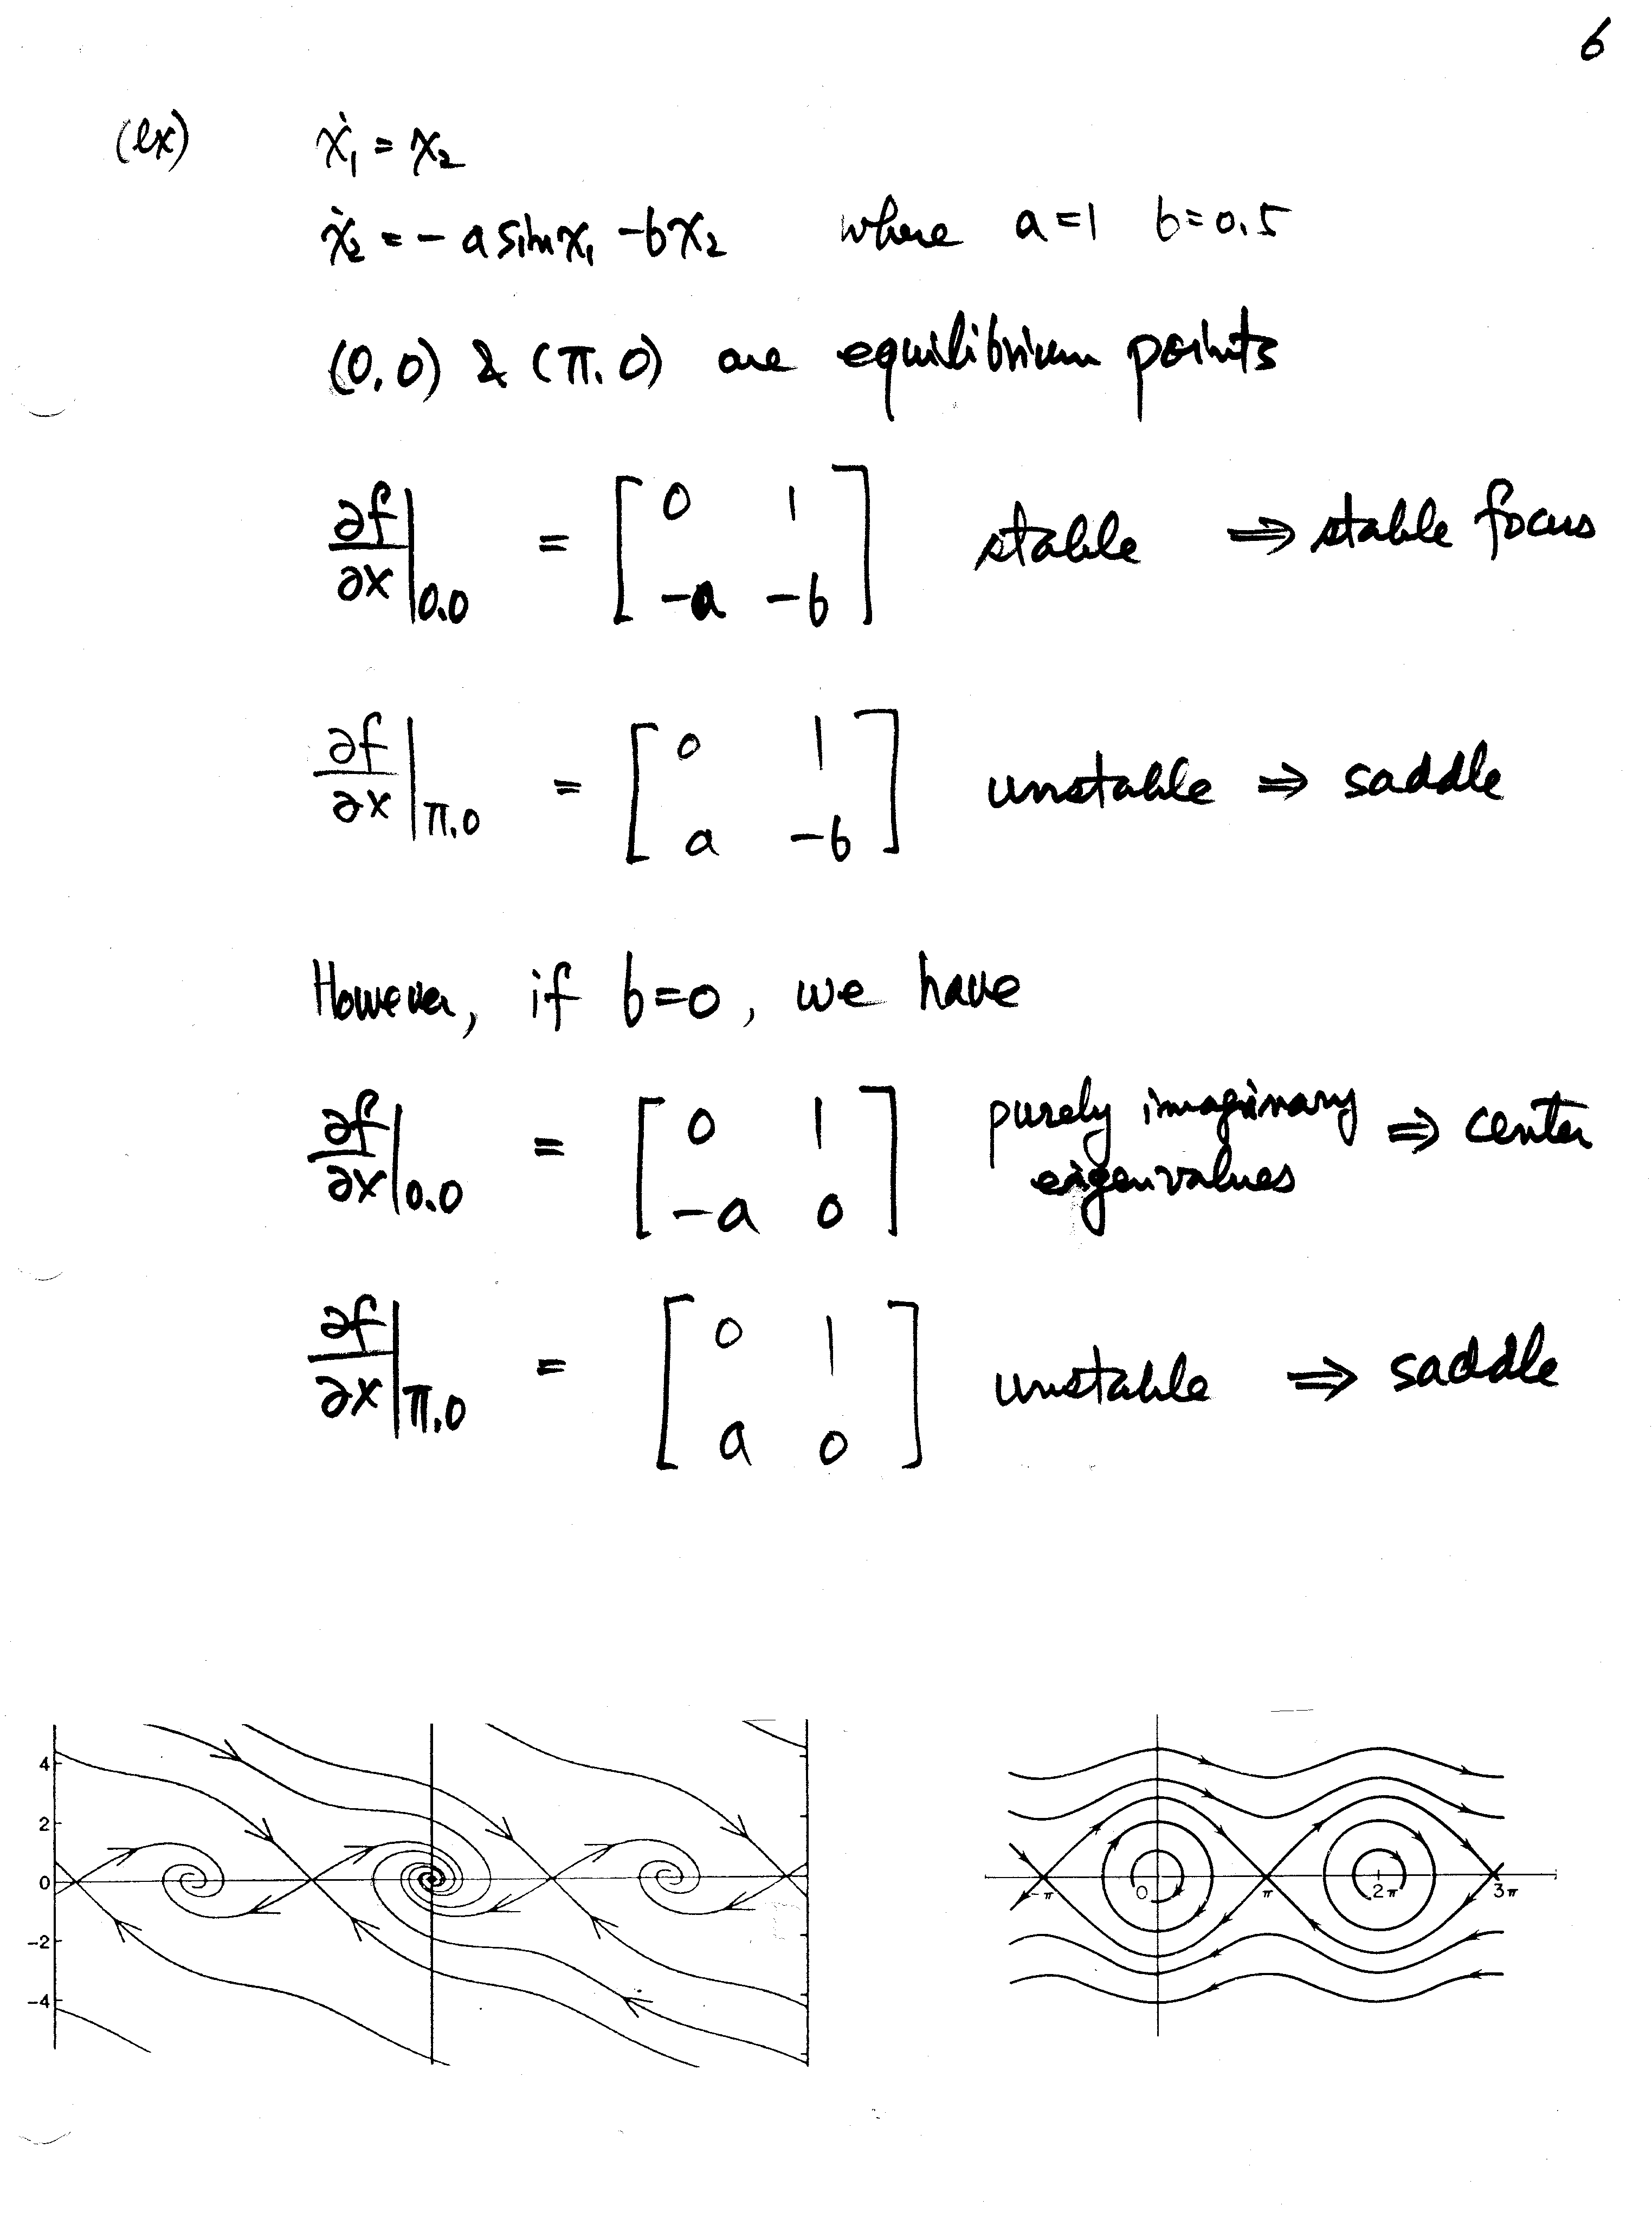 6
(ex) ẋ₁ = x₂
ẋ₂ = - a sin x₁ - b x₂ where a=1 b=0.5
(0,0) & (π.0) are equilibrium points
∂f/∂x |0.0 = [ 0 1 ; -a -b ] stable ⇒ stable focus
∂f/∂x |π.0 = [ 0 1 ; a -b ] unstable ⇒ saddle
However, if b=0, we have
∂f/∂x |0.0 = [ 0 1 ; -a 0 ] purely imaginary eigenvalues ⇒ center
∂f/∂x |π.0 = [ 0 1 ; a 0 ] unstable ⇒ saddle
4
2
0
-2
-4
-π 0 π 2π 3π